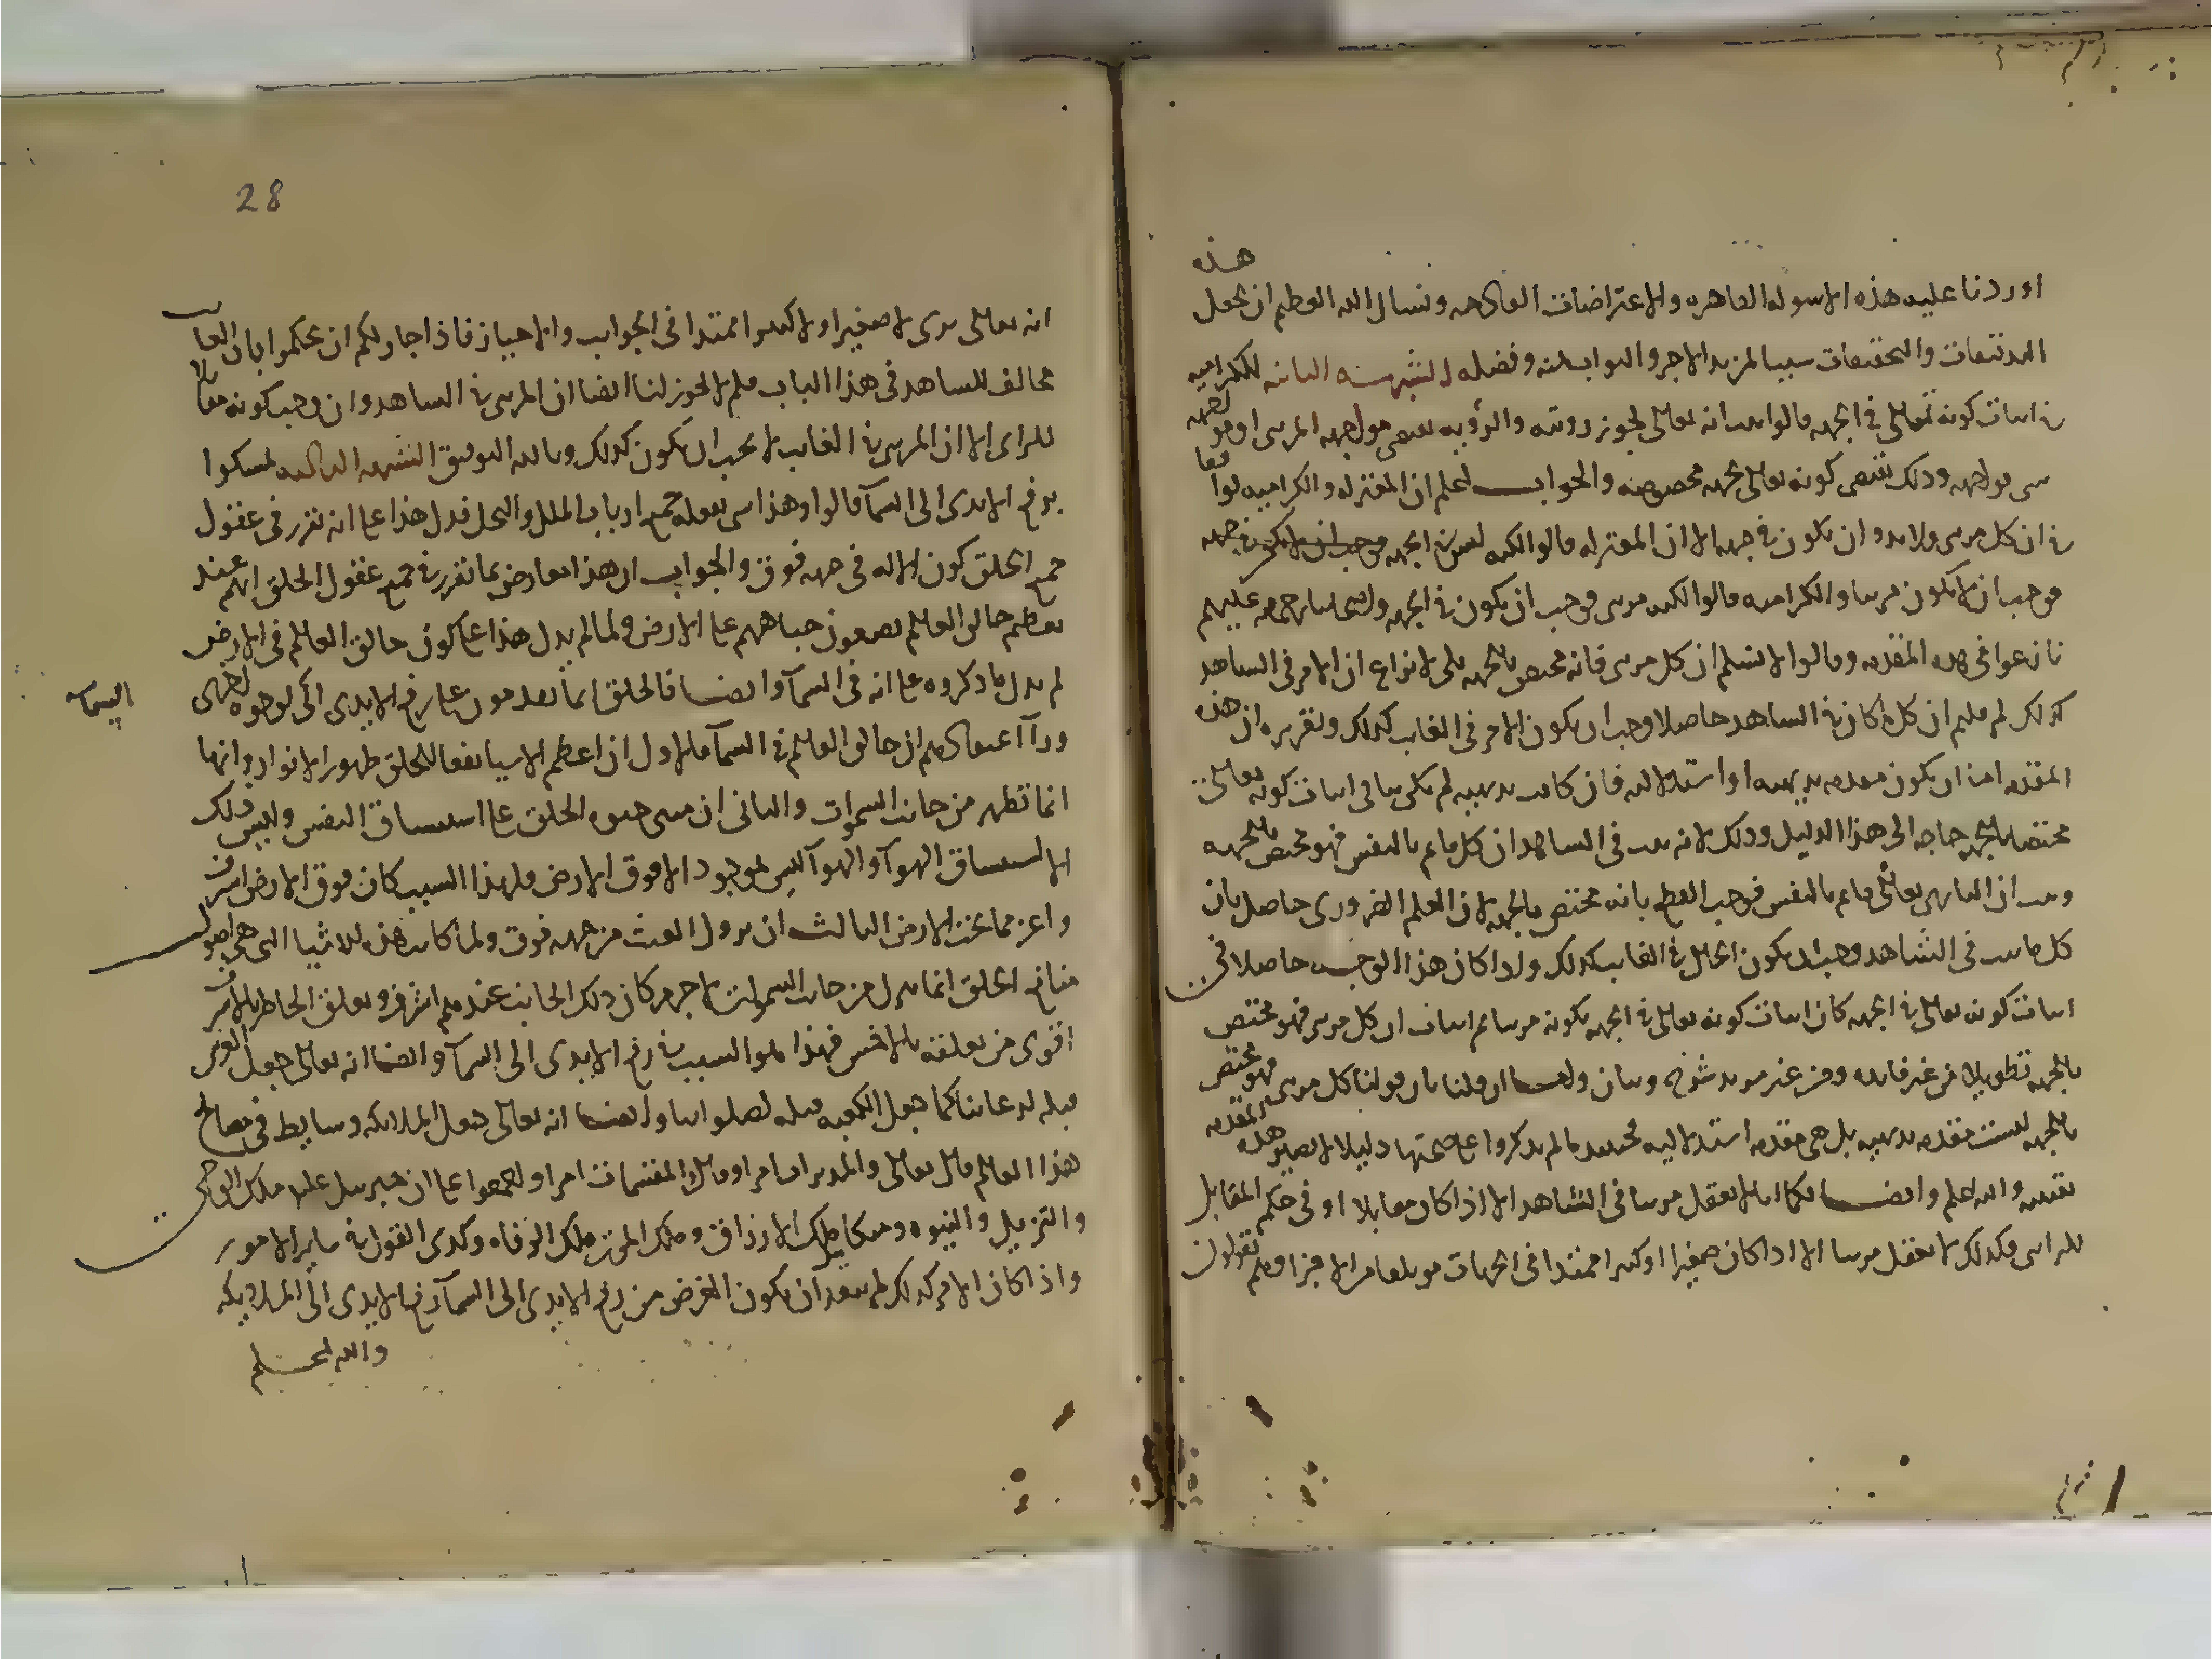 هذه
اوردنا عليه هذه الاسوله القاهره والاعتراضات القادحه ونسال الله العظيم ان يجعل
التدقيقات والتحقيقات سببا لمزيد الاجر والثواب بمنه وفضله الشبهة الثانيه للكراميه
في اثبات كونه تعالى في الجهه قالوا ثبت انه تعالى تجوز رويته والرؤيه تقتضي مواجهه المرئي او مواجهه
شي بواجهه وذلك يقتضي كونه تعالى بجهه مخصوصه والجواب اعلم ان المعتزله والكراميه توافقوا
في ان كل مرئي ولابد وان يكون في جهه الا ان المعتزله قالوا لكنه ليس في الجهه
فوجب ان لا يكون مرئيا والكراميه قالوا لكنه مرئي فوجب ان يكون في الجهه واصحابنا رحمهم الله عليهم
نازعوا في هذه المقدمه وقالوا لا نسلم ان كل مرئي فانه مختص بالجهه بلى لا نزاع ان الامر في الشاهد
كذلك لم قلتم ان كل ما كان في الشاهد حاصلا وجب ان يكون الامر في الغايب كذلك وتقريره ان هذه
المقدمه اما ان يكون مقدمه بديهيه او استدلاليه فان كانت بديهيه لم يكن بنا في اثبات كونه تعالى
مختصا بالجهه حاجه الى هذا الدليل وذلك لانه ثبت في الشاهد ان كل قايم بالنفس فهو مختص بالجهه
وثبت ان الباري تعالى قايم بالنفس فوجب القطع بانه مختص بالجهه لان العلم الضروري حاصل بان
كل ما ثبت في الشاهد وجب ان يكون الحال في الغايب كذلك واذا كان هذا الوجه حاصلا في
اثبات كونه تعالى في الجهه كان اثبات كونه تعالى في الجهه بكونه مرئيا ثم اثبات ان كل مرئي فهو مختص
بالجهه تطويلا من غير فايده ومن غير مزيد شرح وبيان وايضا ان قلنا بان قولنا كل مرئي فهو مختص
بالجهه ليست مقدمه بديهيه بل هي مقدمه استدلاليه فحينئذ ما لم يذكروا على صحتها دليلا لا تصير هذه المقدمه
يقينيه والله اعلم وايضا فكما انا لا نعقل مرئيا في الشاهد الا اذا كان مقابلا او في حكم المقابل
للرائي فكذلك لا نعقل مرئيا الا اذا كان صغيرا او كبيرا ممتدا في الجهات مؤتلفا من الاجزا وهم يقولون
28
انه تعالى يرى لا صغيرا ولا كبيرا ممتدا في الجوانب والاحياز فاذا جاز لكم ان تحكموا بان الغايب
مخالف للشاهد في هذا الباب فلم لا يجوز لنا ايضا ان المرئي في الشاهد وان وجب كونه مقابلا
للرائي الا ان المرئي في الغايب لا يجب ان يكون كذلك وبالله التوفيق الشبهه الثالثه تمسكوا
برفع الايدي الى السمآ قالوا وهذا شي يفعله جميع ارباب الملل والنحل فدل هذا على انه تقرر في عقول
جميع الخلق كون الاله في جهه فوق والجواب ان هذا معارض بما تقرر في جميع عقول الخلق انهم عند
تعظيم خالق العالم يضعون جباههم على الارض ولما لم يدل هذا على كون خالق العالم في الارض
لم يدل ما ذكروه على انه في السمآ وايضا فالخلق انما يقدمون على رفع الايدي الى السمآ لوجوه اخرى
ورآ اعتقادهم ان خالق العالم في السمآ فالاول ان اعظم الاشيا نفعا للخلق ظهور الانوار وانها
انما تظهر من جانب السموات والثاني ان مبنى حيوه الخلق على استنشاق النفس وليس ذلك
الا استنشاق الهوآ والهوآ ليس بموجود الا فوق الارض فلهذا السبب كان فوق الارض اشرف
واعز مما تحت الارض الثالث ان نزول الغيث من جهه فوق ولما كانت هذه الاشيا التي هي اصول
منافع الخلق انما تنزل من جانب السموات لا جرم كان ذلك الجانب عندهم اشرف وتعلق الخاطر بالاشرف
اقوى من تعلقه بالاخس فهذا هو السبب في رفع الايدي الى السمآ وايضا انه تعالى جعل العرش
قبله لدعائنا كما جعل الكعبه قبله لصلواتنا وايضا انه تعالى جعل الملايكه وسايط في مصالح
هذا العالم قال تعالى والمدبرات امرا وقال والمقسمات امرا واجمعوا على ان جبريل عليه ملك الوحي
والتنزيل والنبوه وميكائيل ملك الارزاق وملك الموت ملك الوفاه وكذى القول في ساير الامور
واذا كان الامر كذلك لم يبعد ان يكون الغرض من رفع الايدي الى السمآ رفع الايدي الى الملايكه
والله اعلم